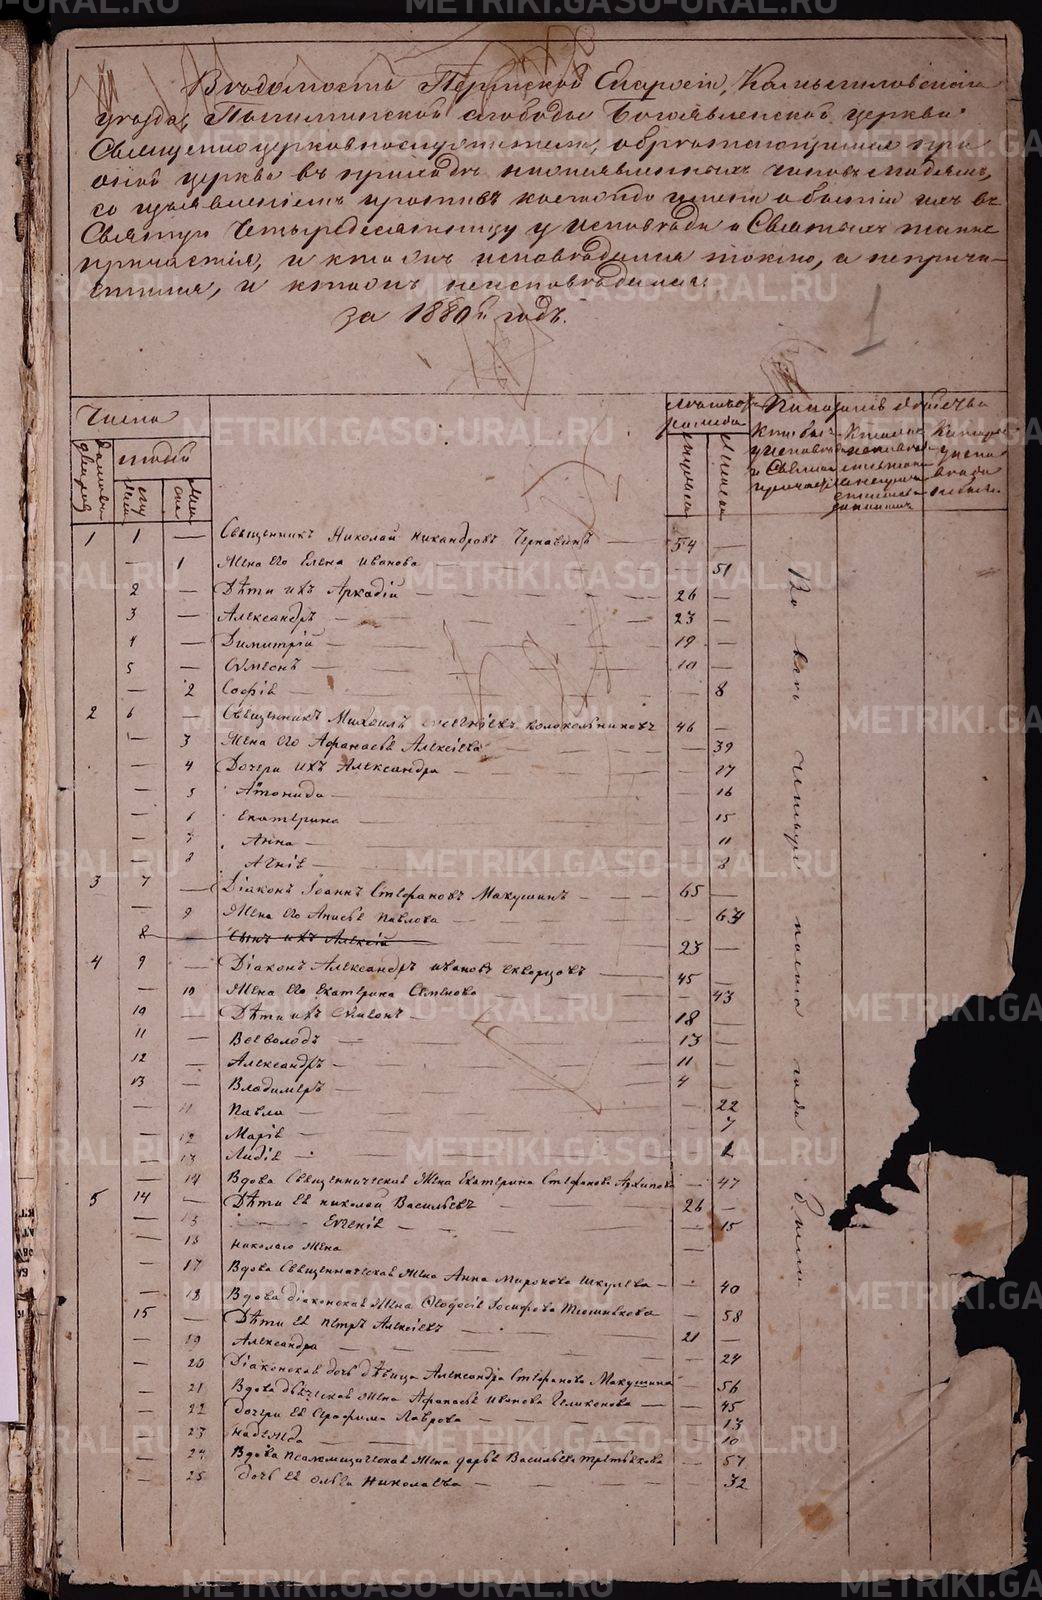 Вѣдомость Пермской Епархіи, Камышловскаго
уѣзда, Пышминской слободы Богоявленской церкви
Священноцерковнослужители, обрѣтающимся при
оной церкви въ приходѣ нижеявленныхъ чиновъ людемъ,
со изъявленіемъ противъ коегождо имени о бытіи ихъ въ
Святую Четыредесятницу у исповѣди и Святыхъ таинъ
причастія, и кто изъ исповѣдался токмо, а неприча-
стился, и кто изъ неисповѣдался.
за 1880й годъ.
1
Числа
Людей
Лѣта отъ рожденія
Показаніе о бытіи у
1 1 — Священникъ Николай Никандровъ Чернавинъ — 54 —
— 1 Жена его Елена Иванова — — 51
2 — Дѣти ихъ Аркадій — 26 —
3 — Александръ — 23 —
4 — Димитрій — 19 —
5 — Симеонъ — 10 —
— 2 Софія — — 8
2 6 — Священникъ Михаилъ Колокольниковъ 46 —
— 3 Жена его Афанасья Алексіева — 39
— 4 Дочери ихъ Александра — — 17
— 5 Антонида — 16
— 6 Екатерина — 15
— 7 Анна — 11
— 8 Агнія — 8
3 7 — Діаконъ Іоаннъ Стефановъ Макушинъ — 65 —
— 9 Жена его Анисья Павлова — — 64
8 Сынъ ихъ Алексій 23 —
4 9 — Діаконъ Александръ Ивановъ Скворцовъ — 45 —
— 10 Жена его Екатерина Семенова — 43
10 — Дѣти ихъ Симеонъ — 18 —
11 — Всеволодъ — 13 —
12 — Александръ — 11 —
13 — Владимеръ — 4 —
— 11 Павла — — 22
— 12 Марія — — 7
— 13 Лидія —
— 14 Вдова Священническая Жена Екатерина Стефанова Архипова — 47
5 14 — Дѣти ея Николай Васильевъ — 26 —
— Евгенія — — 15
Николаю Жена —
— 17 Вдова Священническая Жена Анна Миронова Шкулева — 40
— 18 Вдова Діаконская Жена Ѳеодосія Іосифова — 58
15 — Дѣти ея Петръ Алексіевъ — 21 —
— 19 Александра — — 24
— 20 Діаконская дочь дѣвица Александра Стефанова Макушина — 56
— 21 Вдова дьяческая Жена Афанасья Иванова Геликонова — 45
— 22 Дочери ея Серафима Лаврова — 13
— 23 Надежда — 10
— 24 Вдова Псаломщическая Жена Дарья Васильева Третьякова — 57
— 25 Дочь ея Ольга Николаева — 32
METRIKI.GASO-URAL.RU